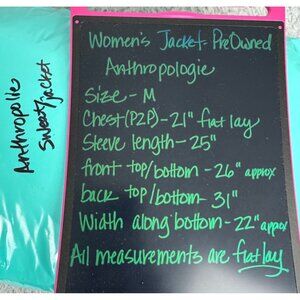 Anthropolie
Sweater jacket
Women's Jacket- PreOwned
Anthropologie
Size - M
Chest (P2P) - 21" flat lay
Sleeve length - 25"
front top/bottom - 26" approx
back top/bottom - 31"
Width along bottom - 22" approx
All measurements are flat lay